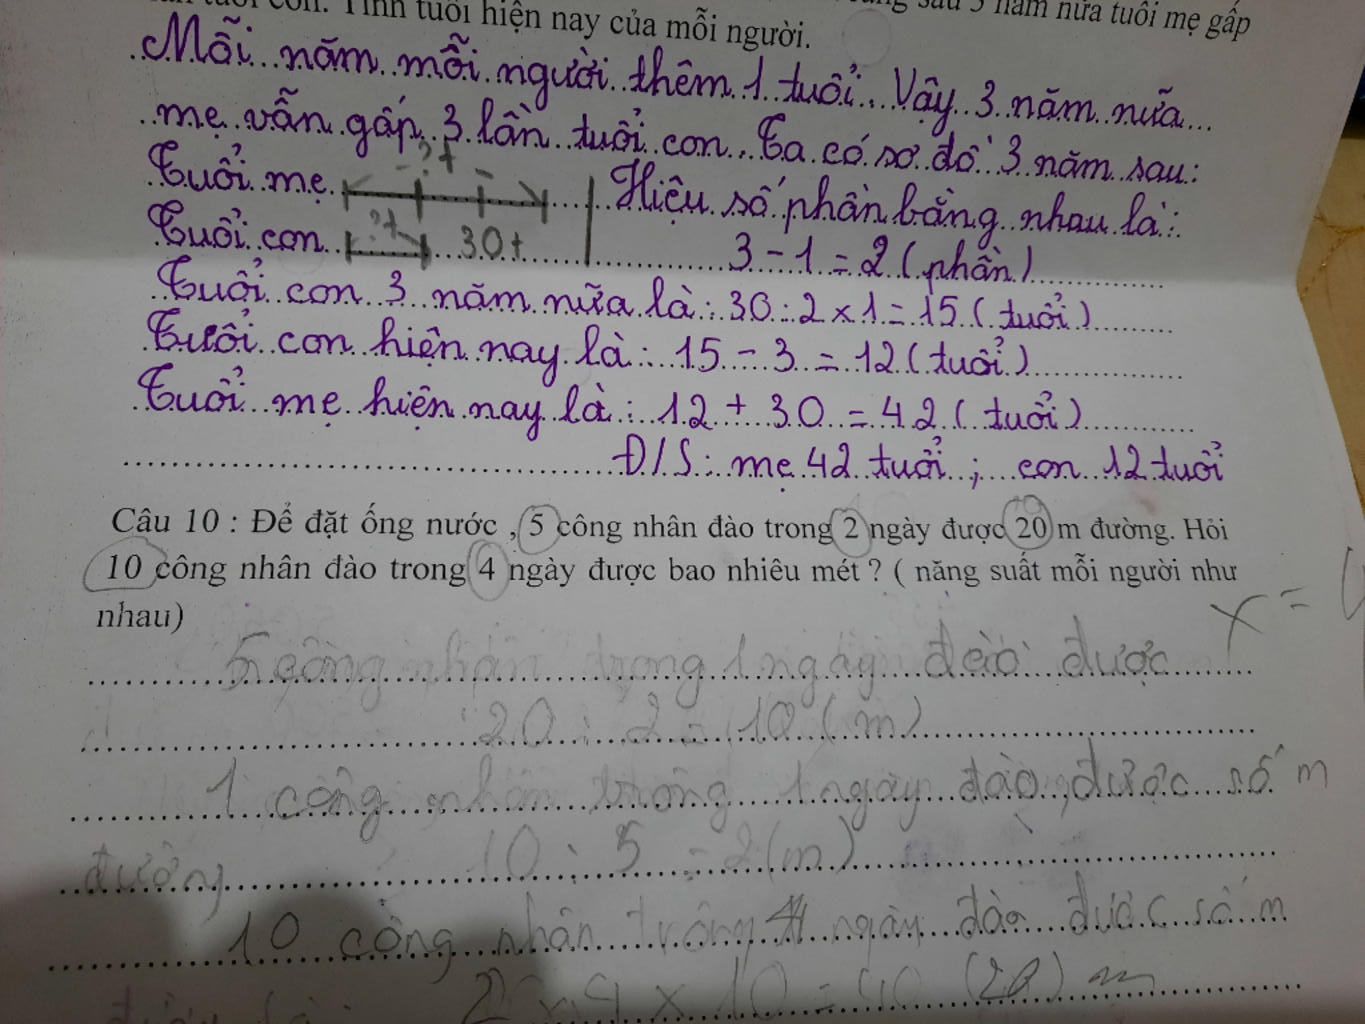 tuổi con. Tính tuổi hiện nay của mỗi người.
sau 3 năm nữa tuổi mẹ gấp
Mỗi năm mỗi người thêm 1 tuổi. Vậy 3 năm nữa
mẹ vẫn gấp 3 lần tuổi con. Ta có sơ đồ 3 năm sau:
?t
Tuổi mẹ
Hiệu số phần bằng nhau là:
?t
Tuổi con 30t
3 - 1 = 2 (phần)
Tuổi con 3 năm nữa là: 30 : 2 x 1 = 15 (tuổi)
Tuổi con hiện nay là: 15 - 3 = 12 (tuổi)
Tuổi mẹ hiện nay là: 12 + 30 = 42 (tuổi)
Đ/S: mẹ 42 tuổi; con 12 tuổi
Câu 10 : Để đặt ống nước , 5 công nhân đào trong 2 ngày được 20 m đường. Hỏi
10 công nhân đào trong 4 ngày được bao nhiêu mét ? ( năng suất mỗi người như
nhau)
x =
5 công nhân trong 1 ngày đào được
20 : 2 = 10 (m)
1 công nhân trong 1 ngày đào được số m
đường
10 : 5 = 2 (m)
10 công nhân trong 4 ngày đào được số m
2 x 4 x 10 = m